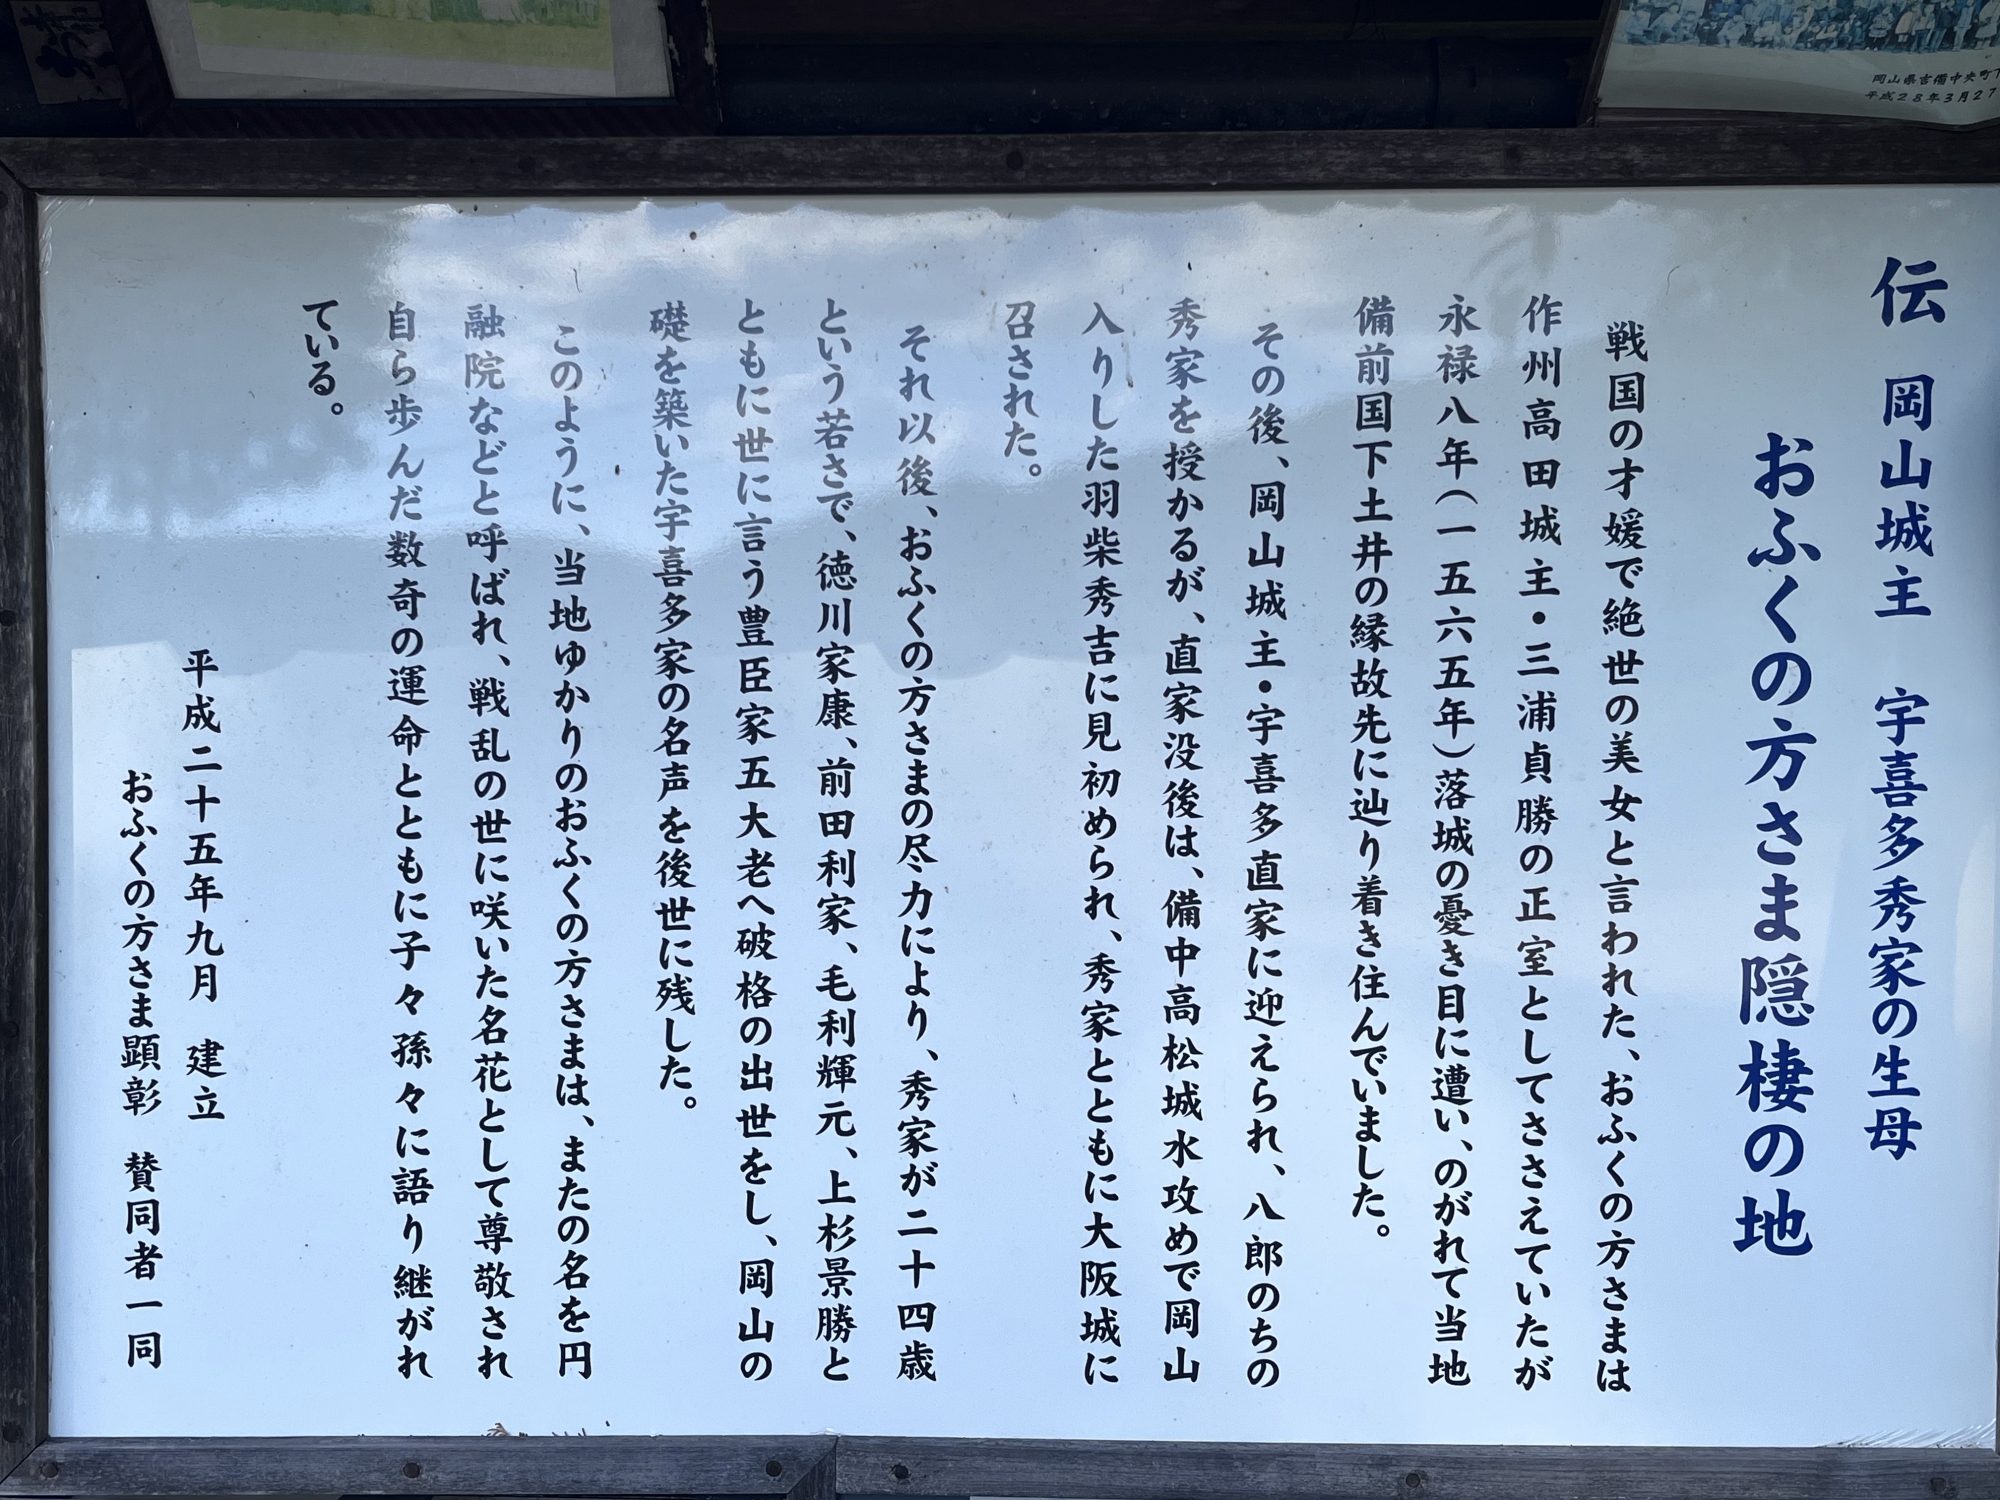 伝 岡山城主 宇喜多秀家の生母
おふくの方さま隠棲の地
戦国の才媛で絶世の美女と言われた、おふくの方さまは
作州高田城主・三浦貞勝の正室としてささえていたが
永禄八年(一五六五年)落城の憂き目に遭い、のがれて当地
備前国下土井の縁故先に辿り着き住んでいました。
その後、岡山城主・宇喜多直家に迎えられ、八郎のちの
秀家を授かるが、直家没後は、備中高松城水攻めで岡山
入りした羽柴秀吉に見初められ、秀家とともに大阪城に
召された。
それ以後、おふくの方さまの尽力により、秀家が二十四歳
という若さで、徳川家康、前田利家、毛利輝元、上杉景勝と
ともに世に言う豊臣家五大老へ破格の出世をし、岡山の
礎を築いた宇喜多家の名声を後世に残した。
このように、当地ゆかりのおふくの方さまは、またの名を円
融院などと呼ばれ、戦乱の世に咲いた名花として尊敬され
自ら歩んだ数奇の運命とともに子々孫々に語り継がれ
ている。
平成二十五年九月 建立
おふくの方さま顕彰 賛同者一同
岡山県吉備中央町下
平成28年3月27